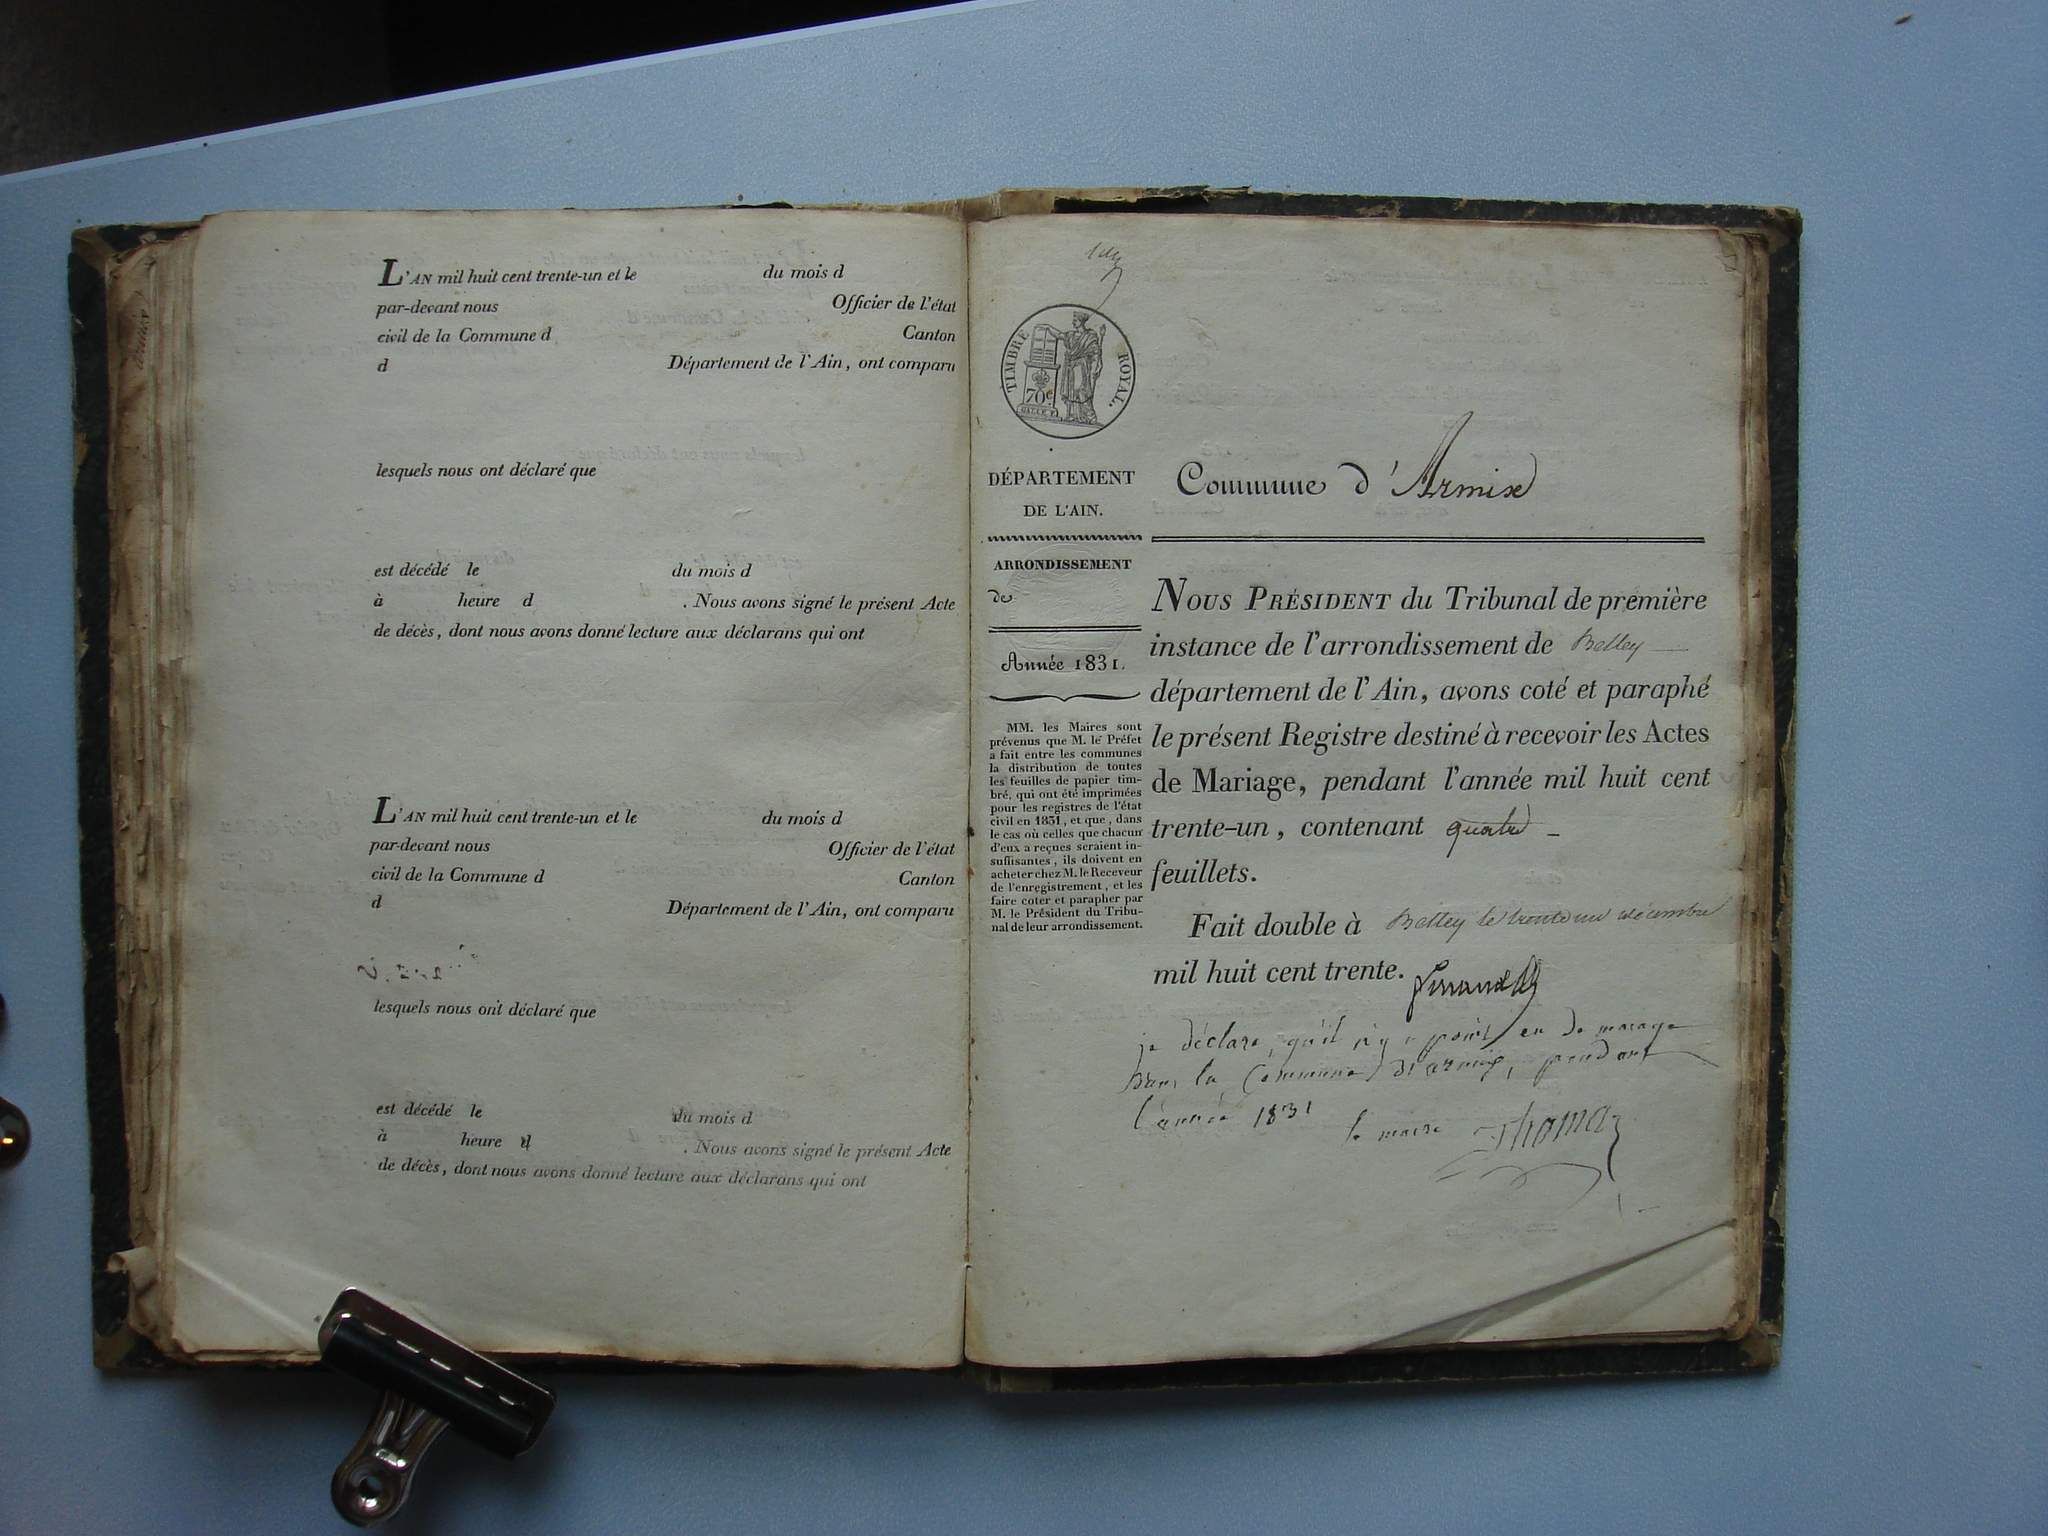 L'AN mil huit cent trente-un et le du mois d
par-devant nous Officier de l'état
civil de la Commune d Canton
d Département de l'Ain, ont comparu
lesquels nous ont déclaré que
est décédé le du mois d
à heure d . Nous avons signé le présent Acte
de décès, dont nous avons donné lecture aux déclarans qui ont
L'AN mil huit cent trente-un et le du mois d
par-devant nous Officier de l'état
civil de la Commune d Canton
d Département de l'Ain, ont comparu
lesquels nous ont déclaré que
est décédé le du mois d
à heure d . Nous avons signé le présent Acte
de décès, dont nous avons donné lecture aux déclarans qui ont
TIMBRE ROYAL.
70c
DÉPARTEMENT
DE L'AIN.
ARRONDISSEMENT
de
Année 1831.
MM. les Maires sont
prévenus que M. le Préfet
a fait entre les communes
la distribution de toutes
les feuilles de papier tim-
bré, qui ont été imprimées
pour les registres de l'état
civil en 1831, et que, dans
le cas où celles que chacun
d'eux a reçues seraient in-
suffisantes, ils doivent en
acheter chez M. le Receveur
de l'enregistrement, et les
faire coter et parapher par
M. le Président du Tribu-
nal de leur arrondissement.
Commune d'Armix
NOUS PRÉSIDENT du Tribunal de première
instance de l'arrondissement de Belley
département de l'Ain, avons coté et paraphé
le présent Registre destiné à recevoir les Actes
de Mariage, pendant l'année mil huit cent
trente-un, contenant quatre
feuillets.
Fait double à Belley le trente un décembre
mil huit cent trente.
je déclare, qu'il n'y a point eu de marage
dans la Commune d'armix, pendant
l'année 1831
le maire Thomas